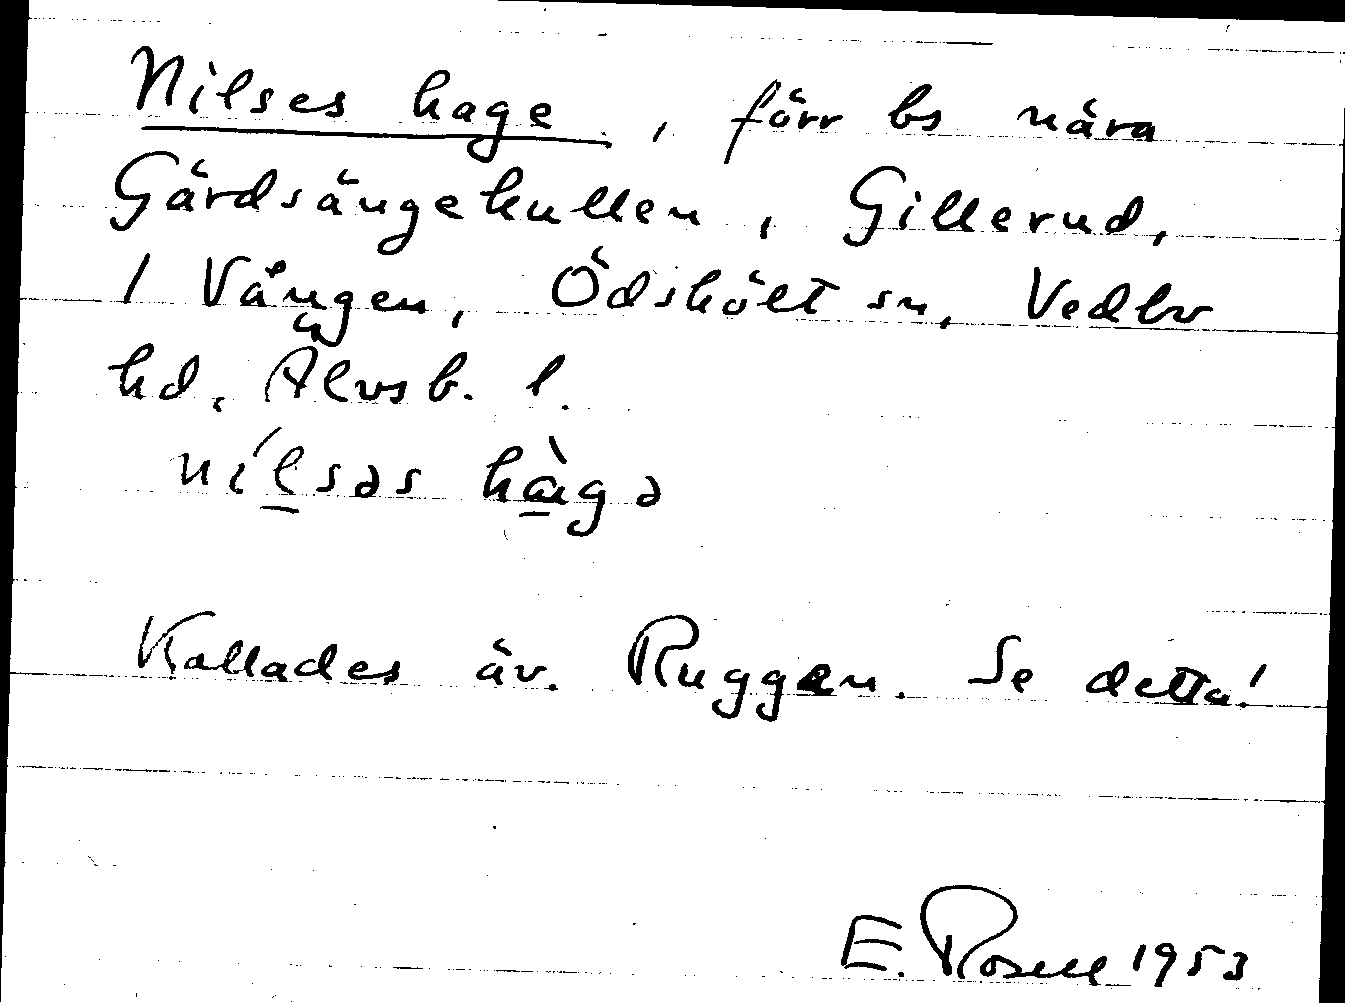 Nilses hage, förr bs nära
Gärdsängekullen, Gillerud,
1 Vången, Ödskölt sn, Vedbo
hd, Älvsb. l.
nílsəs hàgə
Kallades äv. Ruggen. Se detta!
E. Rosell 1953